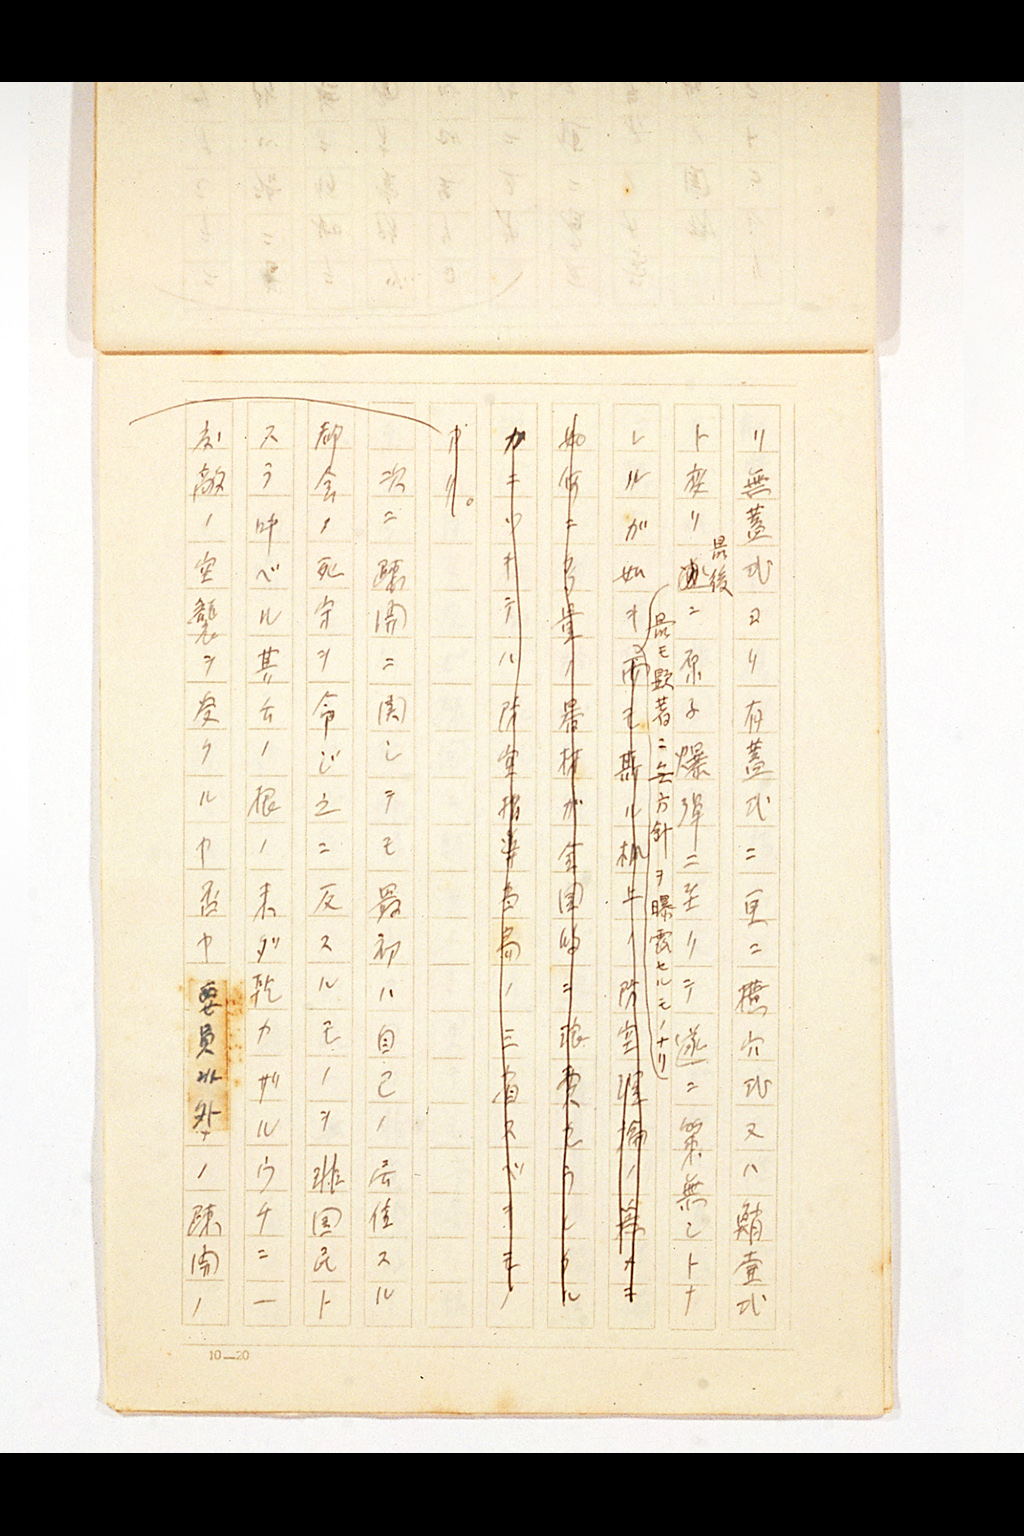 リ無蓋式ヨリ有蓋式ニ更ニ横穴式又ハ鮹壺式
ト変リ
最後
ニ原子爆弾ニ至リテ遂ニ策無シトナ
最モ顕著ニ無方針ヲ曝露セルモノナリ
レルガ如キ而モ斯ル机上ノ防空理論ノ為メキ
如何ニ多量ノ器材ガ全国的ニ浪費セラレタル
カニツキテハ防空指導当局ノ三省スベキモノ
ナリ。
次ニ疎開ニ関シテモ最初ハ自己ノ居住スル
都会ノ死守ヲ命ジ之ニ反スルモノヲ非国民ト
スラ呼ベル其舌ノ根ノ未ダ乾カザルウチニ一
度敵ノ空襲ヲ受クルヤ否ヤ要員以外ノ疎開ノ
10—20